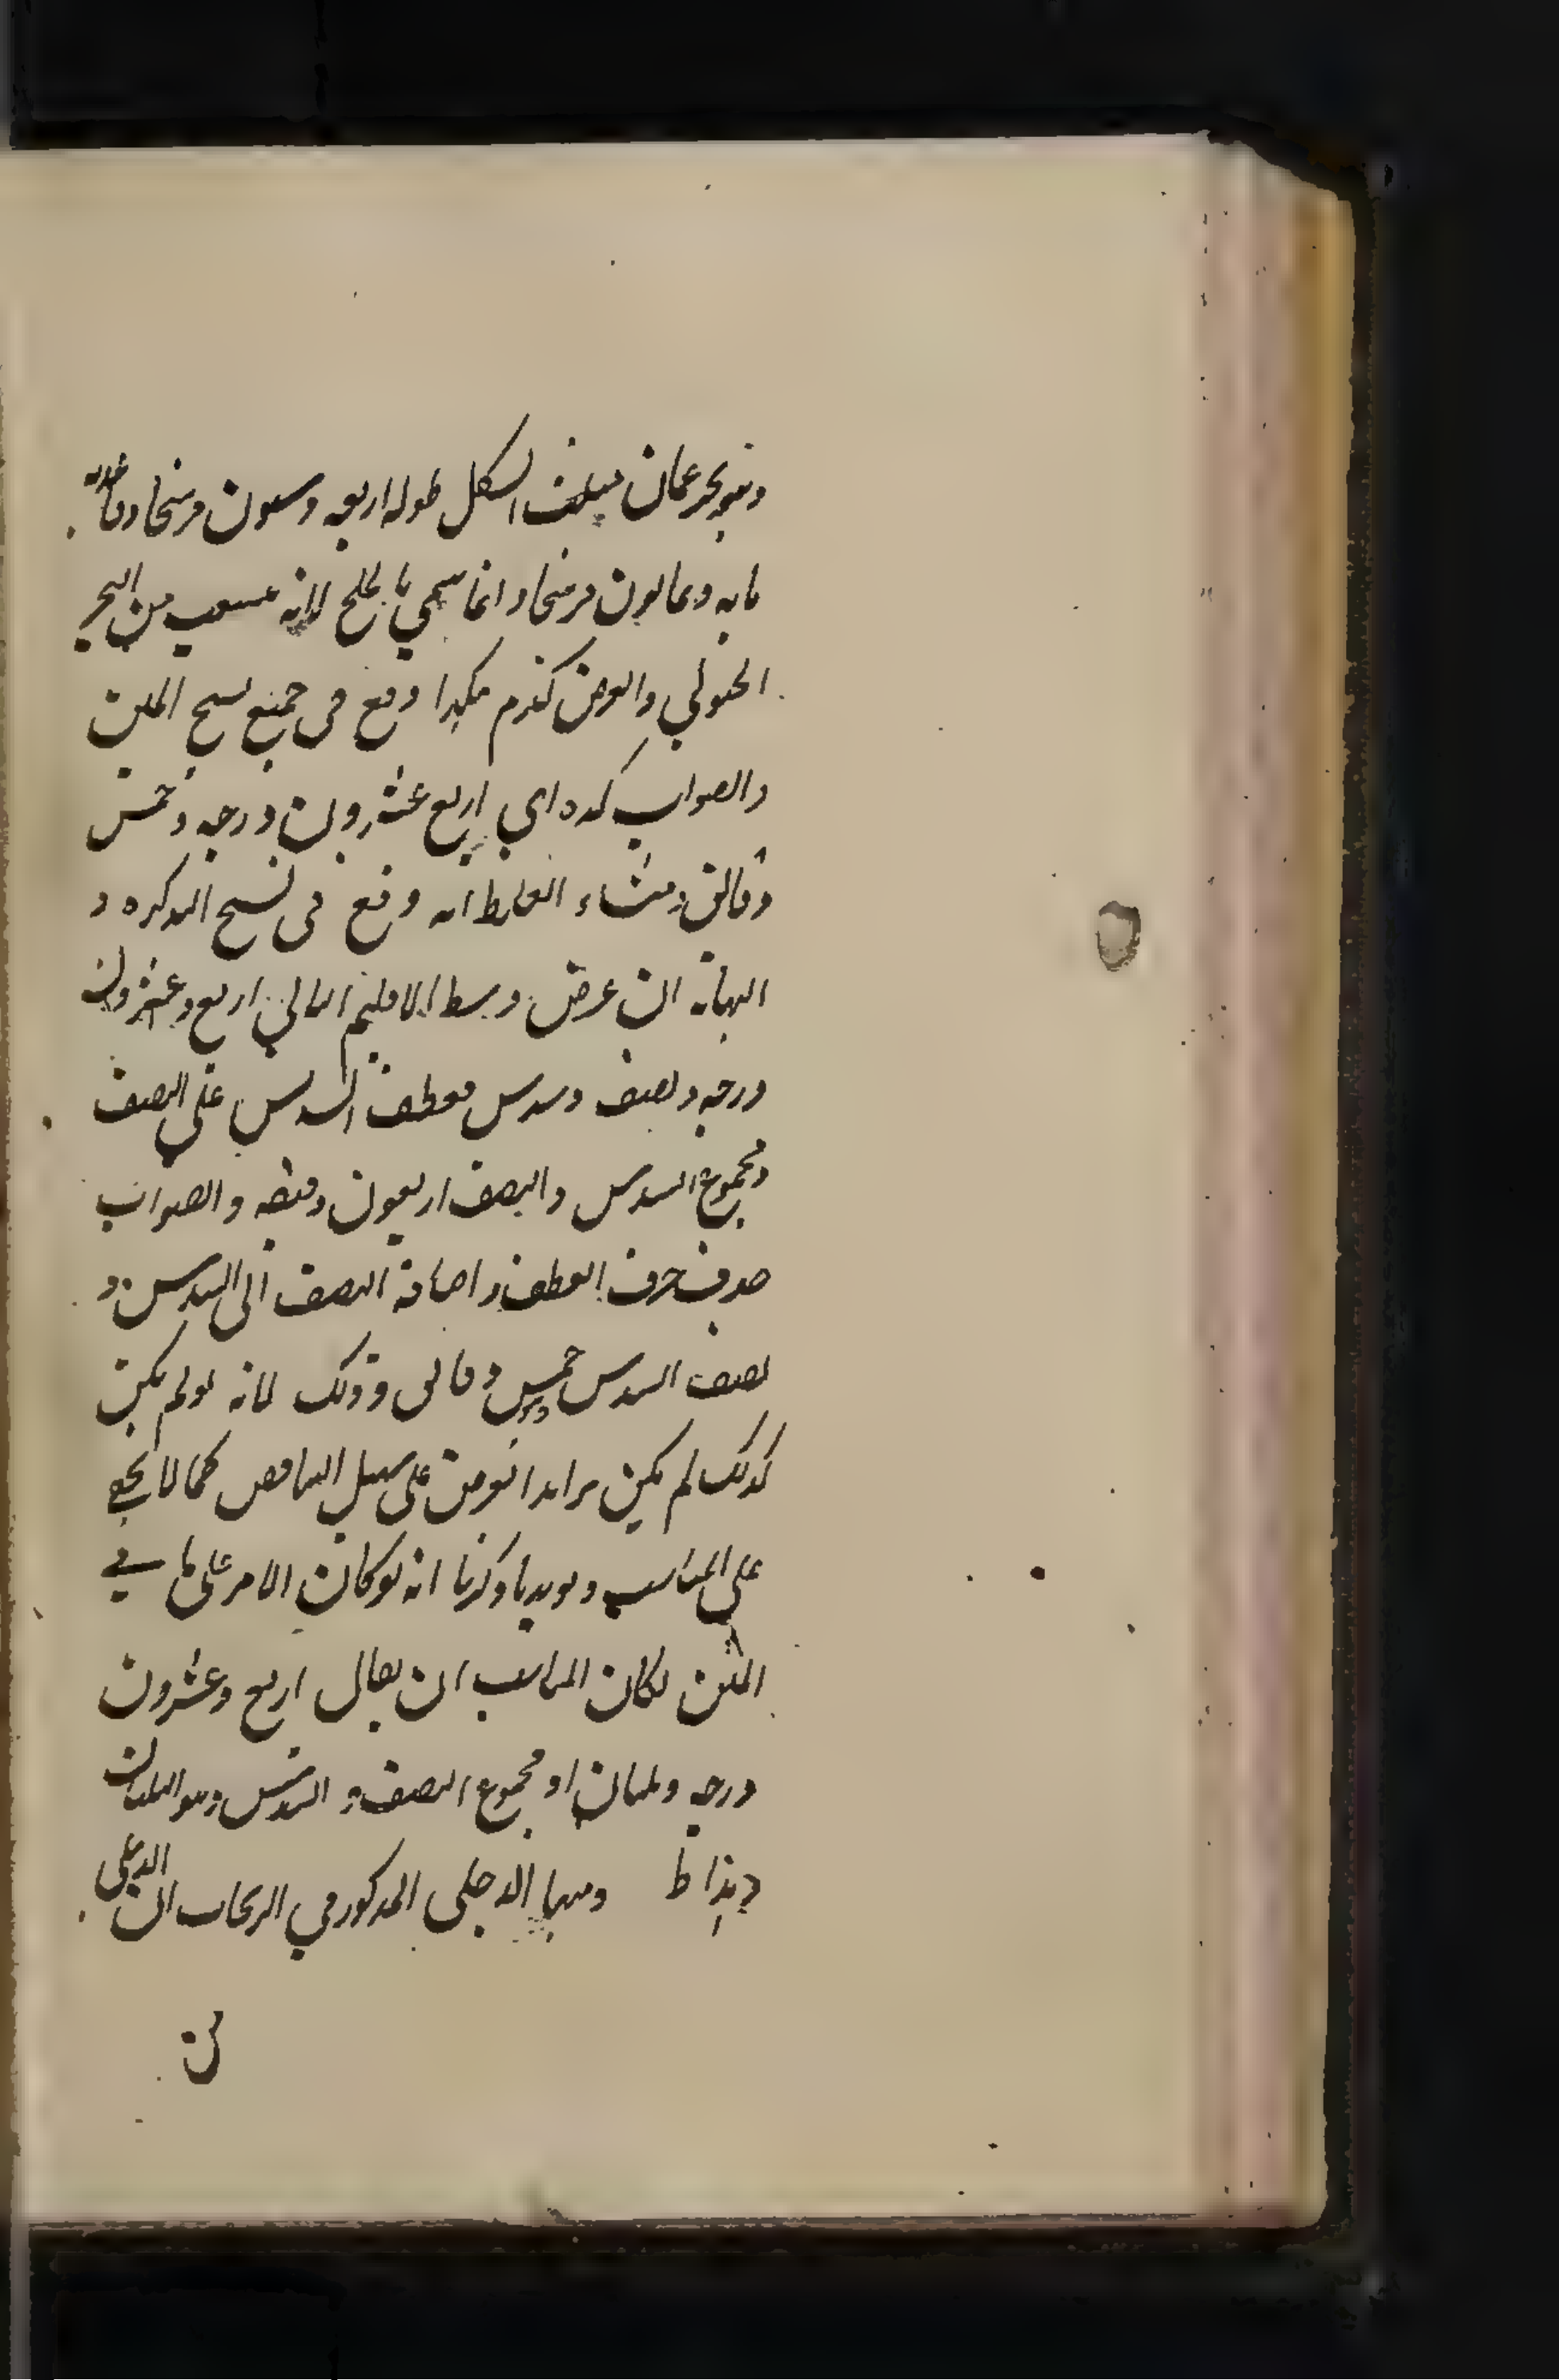 وبحر عمان مثلث الشكل طوله اربعه وستون فرسخا وقاعدته
مايه وثمانون فرسخا وانما سمي بالخليج لانه منشعب من البحر
الجنوبي والعرض كدم هكذا وقع في جميع نسخ المتن
والصواب كده اي اربع عشرون درجه وخمس
دقائق ومنشاء الغلط انه وقع في نسخ التذكره و
النهايه ان عرض وسط الاقليم الثالث اربع وعشرون
درجه ونصف وسدس فعطف السدس على النصف
ومجموع السدس والنصف اربعون دقيقه والصواب
حذف حرف العطف واضافه النصف الى السدس و
نصف السدس خمس دقائق وذلك لانه لو لم يكن
كذلك لم يكن تزايد العرض على سبيل التناقص كما لا يخفى
على المناسب ويويد ما ذكرنا انه لو كان الامر على ما في
المتن لكان المناسب ان يقال اربع وعشرون
درجه وثلثان او مجموع النصف والسدس وهو الثلثان
وهذا ظ ومنها الدجلى المذكور في الريحاب ان الدجلى
ان